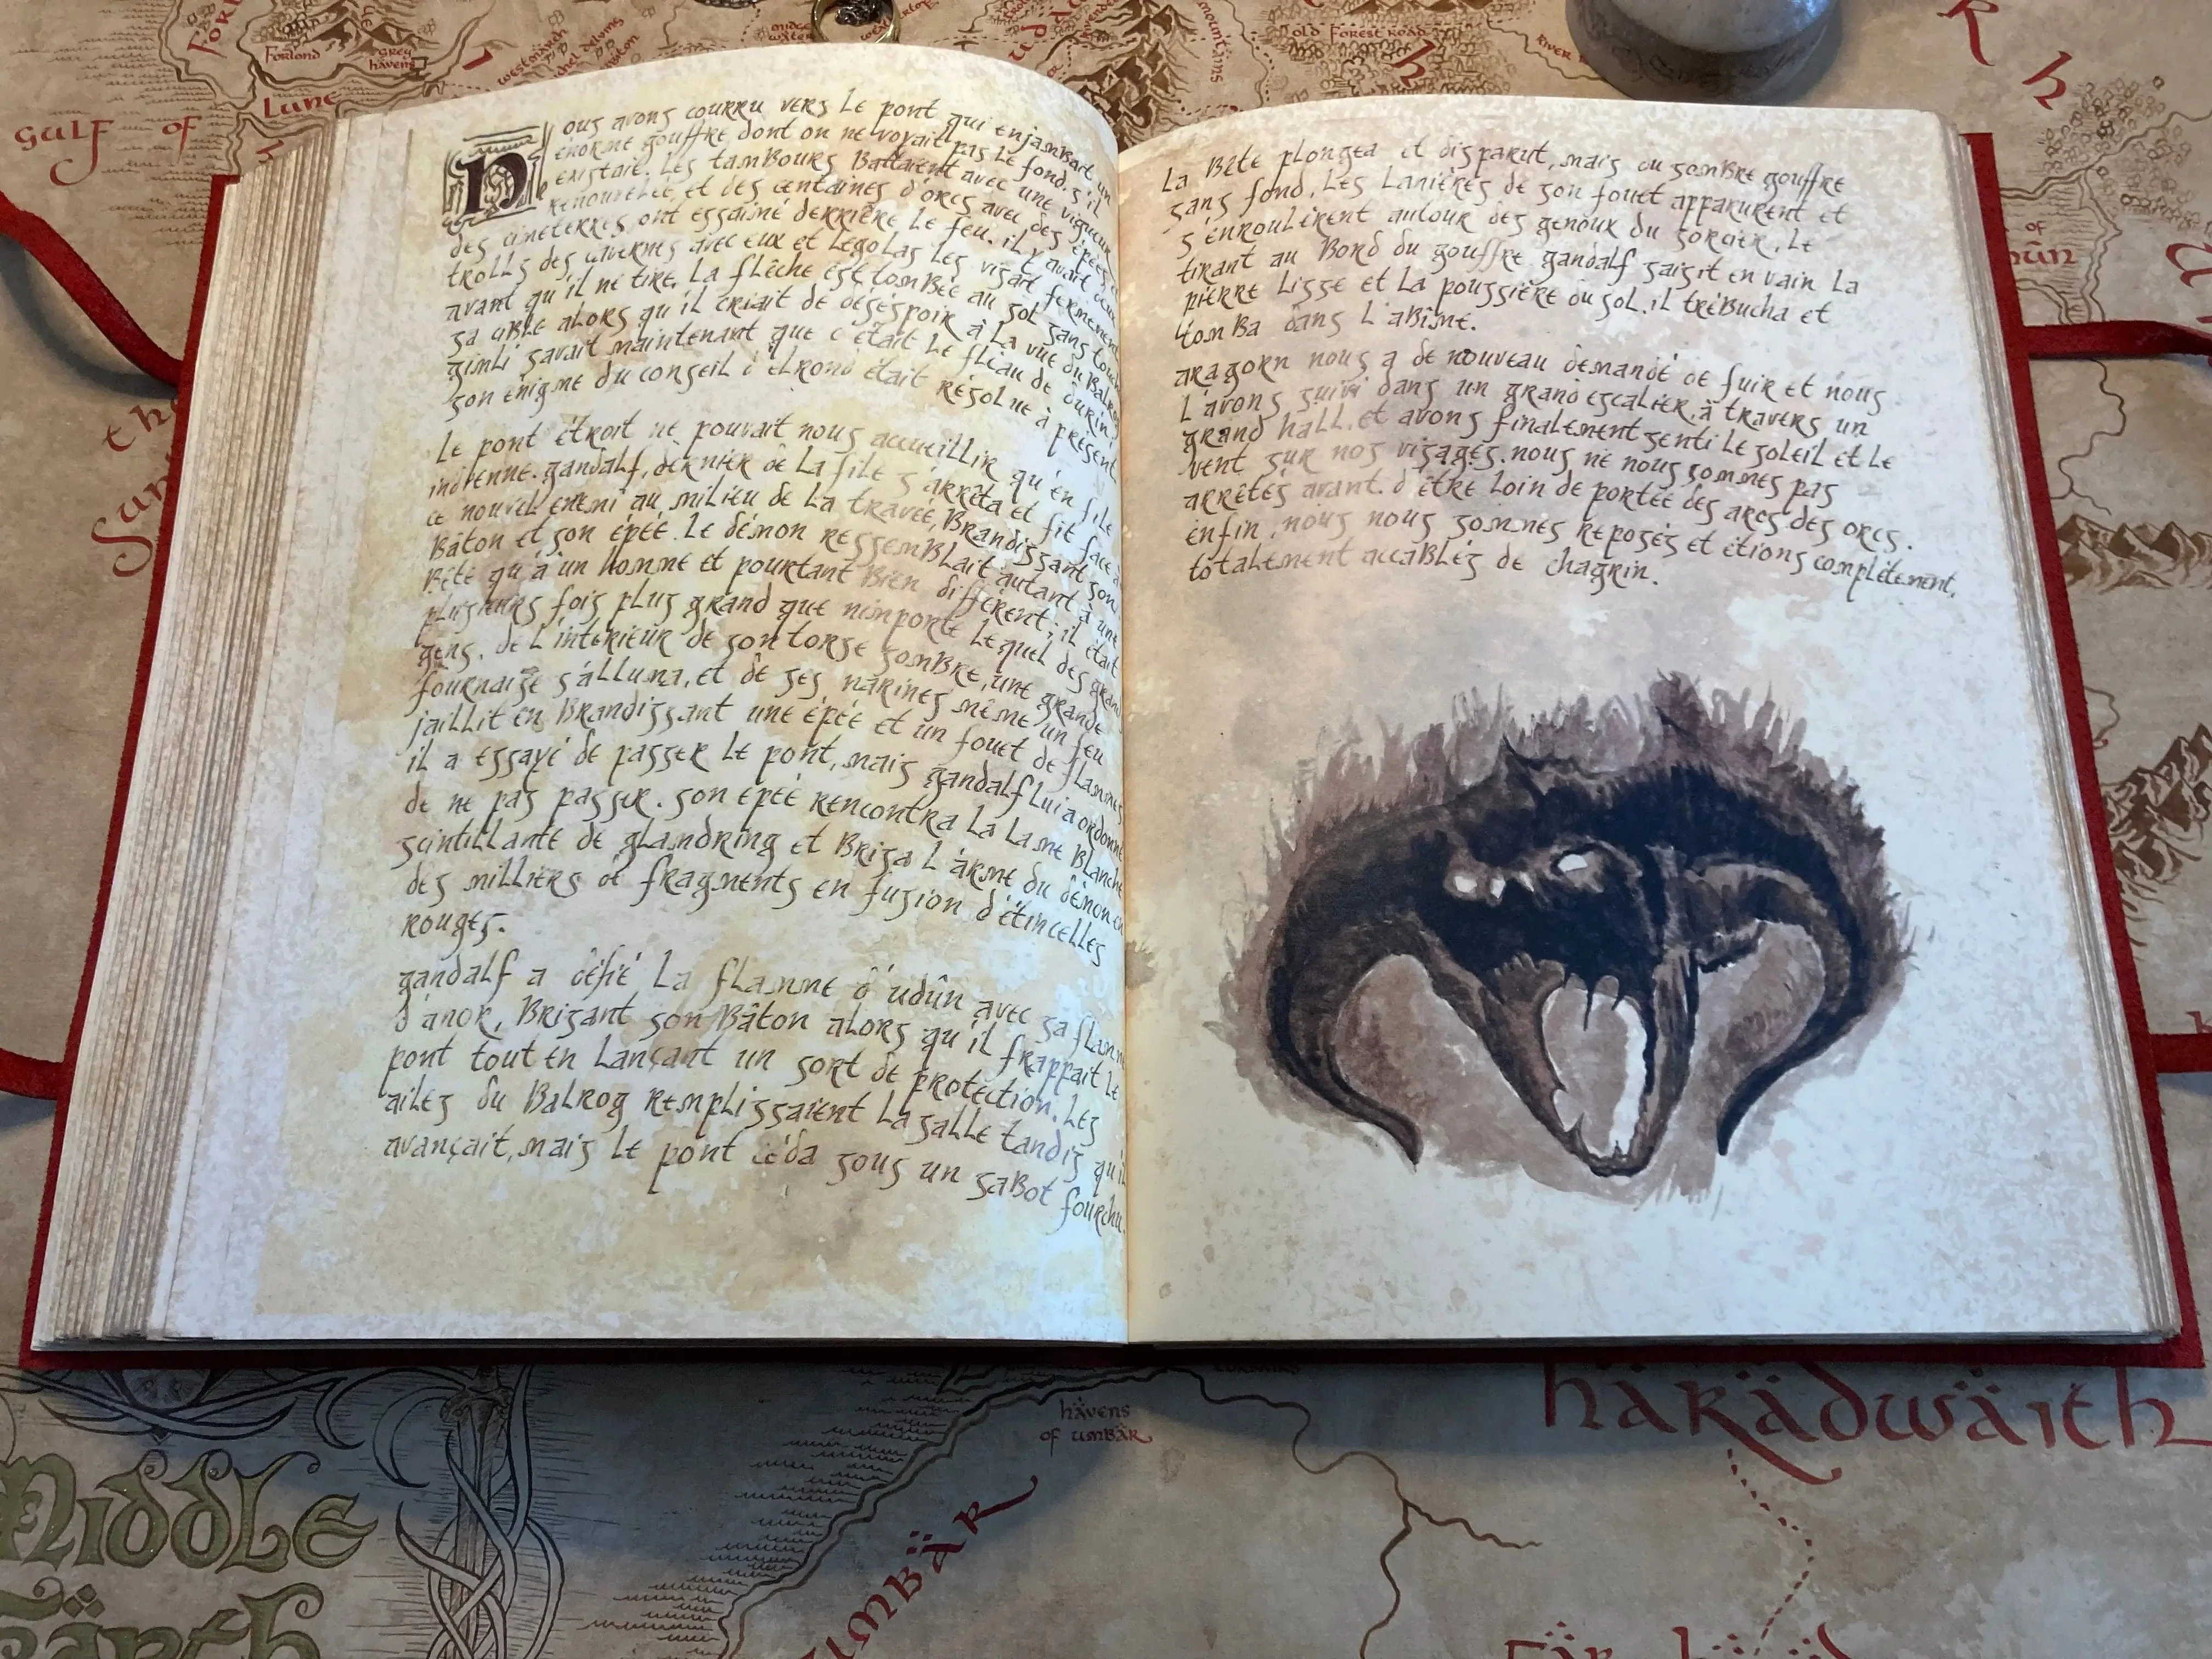 Forlond
Grey
havens
Lune
Gulf of
midge
water
Old Forest Road
River
mountains
R h
of
Nous avons courru vers le pont qui enjambait un
énorme gouffre dont on ne voyait pas le fond, s'il
existait. Les tambours battaient avec une vigueur
renouvelée et des centaines d'orcs avec des épées et
des cimeterres ont essaimé derrière le feu. il y avait deux
trolls des cavernes avec eux et Legolas les visait fermement
avant qu'il ne tire. La flèche est tombée au sol sans
sa cible alors qu'il criait de désespoir à la vue du Balrog
gimli savait maintenant que c'était le fléau de durin,
son énigme du conseil d'elrond était résolue à présent
Le pont étroit ne pouvait nous accueillir qu'en file
indienne. gandalf, dernier de la file s'arrêta et fit face à
ce nouvel ennemi au milieu de la travée, Brandissant son
Bâton et son épée. Le démon ressemblait autant à une
Bête qu'à un homme et pourtant Bien différent; il était
plusieurs fois plus grand que nimporte lequel des grand
gens. de l'intérieur de son torse sombre, une grande
fournaise s'alluma, et de ses narines même un feu
jaillit en Brandissant une épée et un fouet de flammes
il a essayé de passer le pont, mais gandalf lui a ordonné
de ne pas passer. son épée rencontra la lame Blanche
scintillante de glamdring et Brisa l'arme du démon en
des milliers de fragments en fusion d'étincelles
rouges.
gandalf a défié la flamme d'udûn avec sa flamme
d'anor, Brisant son Bâton alors qu'il frappait le
pont tout en lançant un sort de protection. Les
ailes du Balrog remplissaient la salle tandis qu'il
avançait, mais le pont céda sous un sabot fourchu.
La Bête plongea et disparut, mais du sombre gouffre
sans fond, les lanières de son fouet apparurent et
s'énroulèrent autour des genoux du sorcier, le
tirant au Bord du gouffre gandalf saisit en vain la
pierre lisse et la poussière du sol. il trébucha et
tomba dans l'abîme.
aragorn nous a de nouveau demandé de fuir et nous
l'avons suivi dans un grand escalier, à travers un
grand hall, et avons finalement senti le soleil et le
vent sur nos visages. nous ne nous sommes pas
arrêtés avant d'être loin de portée des arcs des orcs.
enfin, nous nous sommes reposés et étions complètement,
totalement accablés de chagrin.
Middle
Earth
havens
of umbar
umbar
haradwaith
Far harad